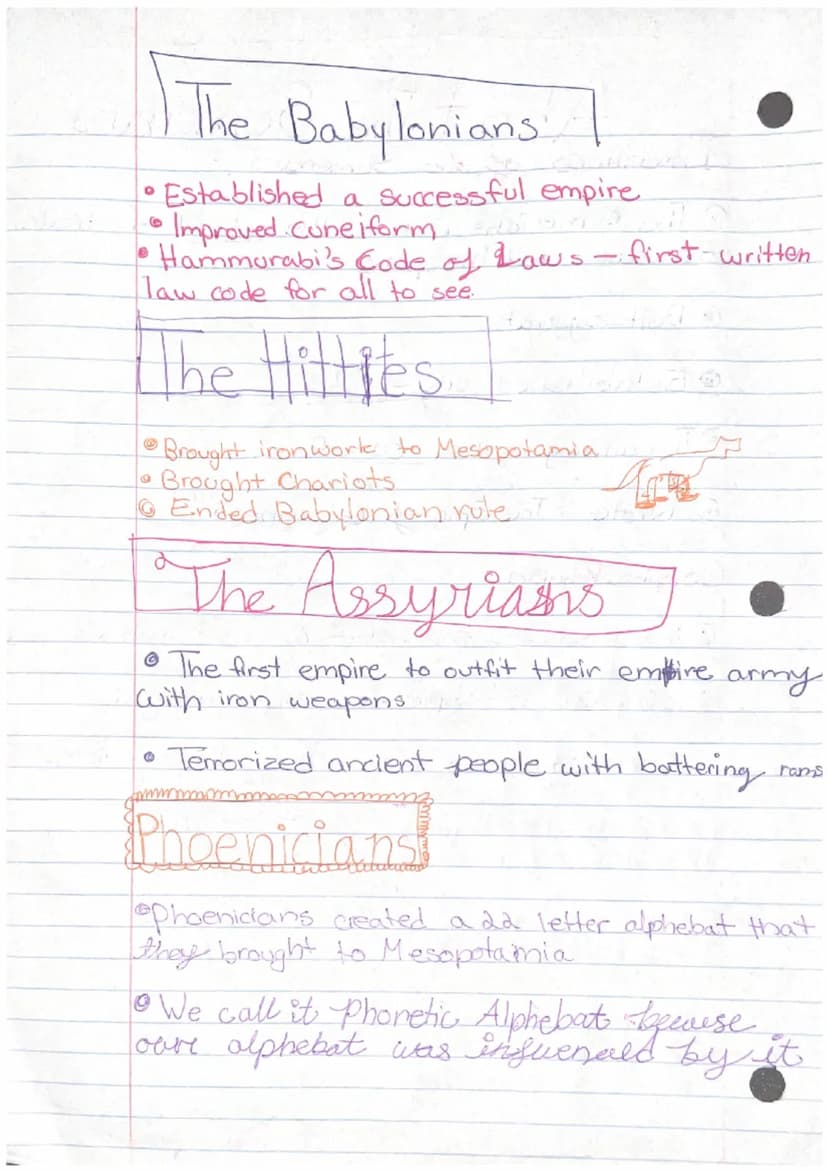 The Babylonians
• Established a successful empire
• Improved cuneiform
• Hammurabi's Code of Laws – first written
law code for all to see.
The Hittites
• Brought ironwork to Mesopotamia
• Brought Chariots
• Ended Babylonian rule
The Assyrians
• The first empire to outfit their empire army
with iron weapons
• Terrorized ancient people with battering rams
Phoenicians
• Phoenicians created a 22 letter alphebat that
they brought to Mesopotamia
• We call it Phonetic Alphebat because
oure alphebat was influenced by it